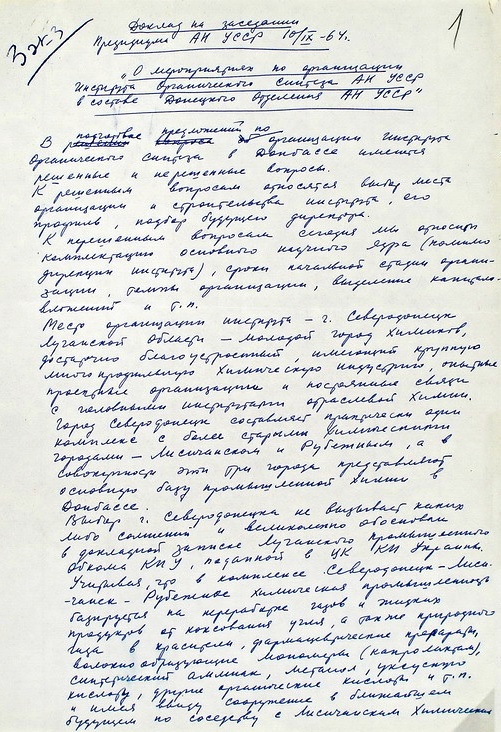 3 экз
1
Доклад на заседании
Президиума АН УССР 10/IX-64г.
"О мероприятиях по организации
Института Органического Синтеза АН УССР
в составе Донецкого Отделения АН УССР"
подготовке предложений по
В организации института
Органического синтеза в Донбассе имеются
решенные и нерешенные вопросы.
К решенным вопросам относятся выбор места
организации и строительства института, его
профиль, подбор будущего директора.
К нерешенным вопросам сегодня мы относим
комплектацию основного научного ядра (помимо
дирекции института), сроки начальной стадии органи-
зации, темпы организации, выделение капитало-
вложений и т.п.
Место организации института - г. Северодонецк
Луганской области - молодой город химиков,
достаточно благоустроенный, имеющий крупную
многопродильную химическую индустрию, опытные
проектные организации и постоянные связи
с головными институтами отраслевой химии.
Город Северодонецк составляет практически один
комплекс с более старыми химическими
городами - Лисичанском и Рубежным, а в
совокупности эти три города представляют
основную базу промышленной химии в
Донбассе.
Выбор г. Северодонецка не вызывает каких
либо сомнений и великолепно обоснован
в докладной записке Луганского промышленного
Обкома КПУ, поданной в ЦК КП Украины.
Учитывая, что в комплексе Северодонецк-Лиси-
чанск-Рубежное химическая промышленность
базируется на переработке газов и жидких
продуктов от коксования угля, а также природного
газа в красители, фармацевтические препараты,
волокнообразующие мономеры (капролактам),
синтетический аммиак, метанол, уксусную
кислоту, другие органические кислоты и т.п.
и имея ввиду сооружение в ближайшем
будущем по соседству с Лисичанским Химическим